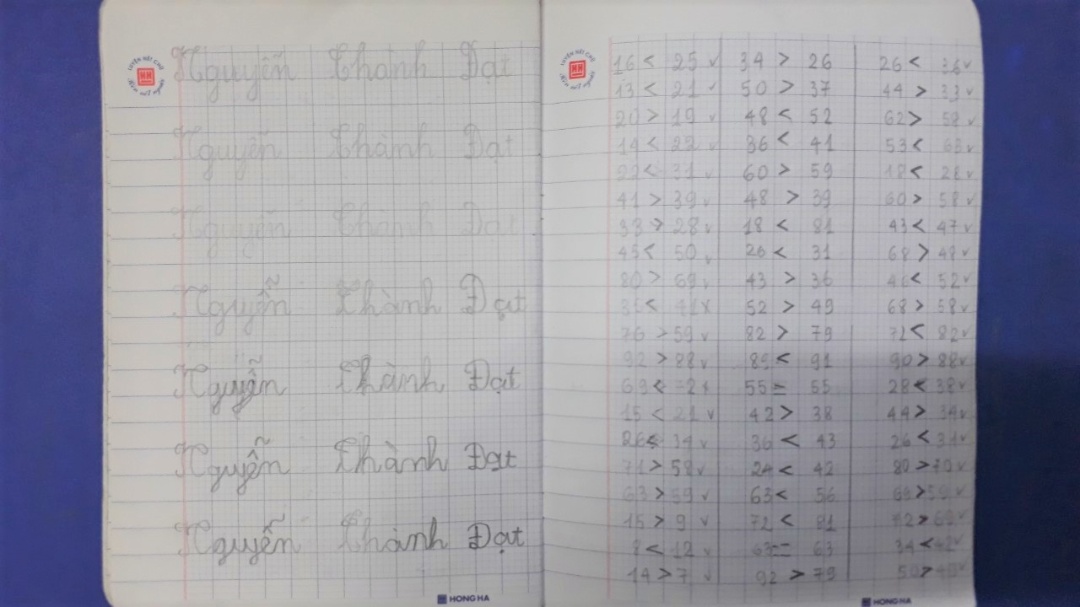 Nguyễn Thành Đạt
Nguyễn Thành Đạt
Nguyễn Thành Đạt
Nguyễn Thành Đạt
Nguyễn Thành Đạt
Nguyễn Thành Đạt
Nguyễn Thành Đạt
HONG HA
16 < 25 34 > 26 26 < 36
13 < 21 50 > 37 44 > 33
20 > 19 48 < 52 62 > 58
14 < 22 36 < 41 53 < 63
22 < 31 60 > 59 18 < 28
41 > 39 48 > 39 60 > 58
33 > 28 18 < 81 43 < 47
45 < 50 26 < 31 68 > 48
80 > 69 43 > 36 46 < 52
35 < 41 52 > 49 68 > 58
76 > 59 82 > 79 72 < 82
92 > 88 89 < 91 90 > 88
69 < 72 55 = 55 28 < 38
15 < 21 42 > 38 44 > 34
26 < 34 36 < 43 26 < 31
71 > 58 24 < 42 80 > 70
63 > 59 63 < 56 69 > 59
15 > 9 72 < 81 72 > 62
8 < 12 63 = 63 34 < 42
14 > 7 92 > 79 50 > 40
HONG HA